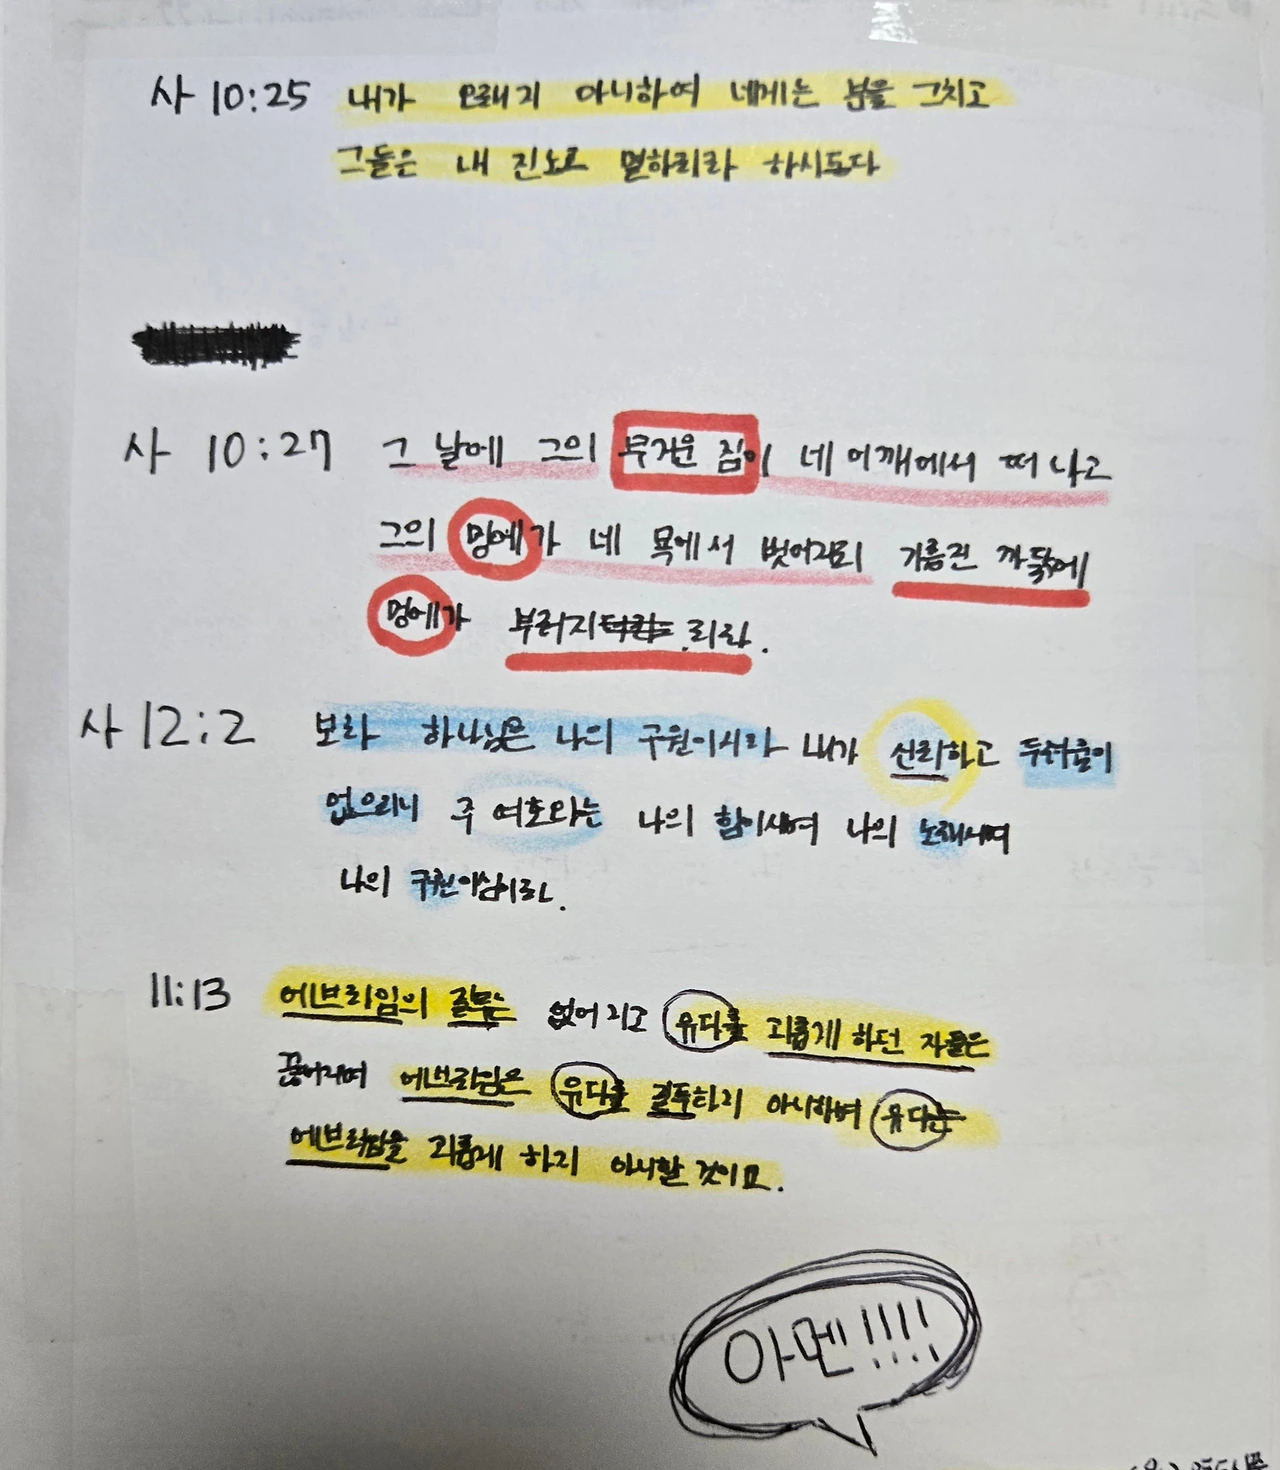 사 10:25 내가 오래지 아니하여 네게는 분을 그치고
그들은 내 진노로 멸하리라 하시도다
사 10:27 그 날에 그의 무거운 짐이 네 어깨에서 떠나고
그의 멍에가 네 목에서 벗어지되 기름진 까닭에
멍에가 부러지리라.
사 12:2 보라 하나님은 나의 구원이시라 내가 신뢰하고 두려움이
없으리니 주 여호와는 나의 힘이시며 나의 노래시며
나의 구원이심이라.
11:13 에브라임의 질투는 없어지고 유다를 괴롭게 하던 자들은
끊어지며 에브라임은 유다를 질투하지 아니하며 유다는
에브라임을 괴롭게 하지 아니할 것이요.
아멘!!!!